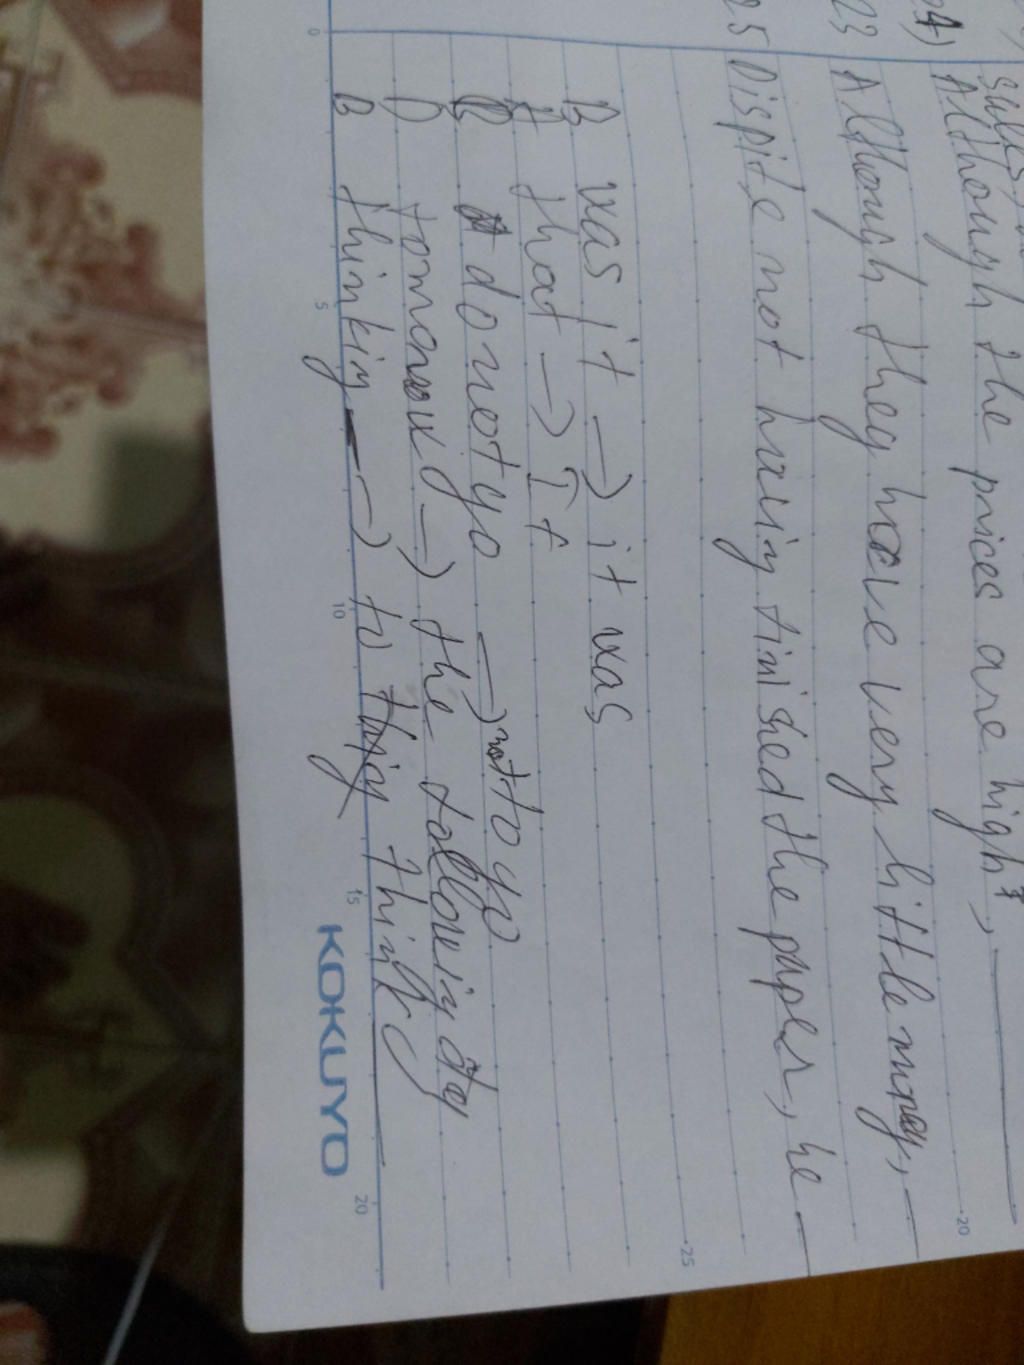 Although the prices are high,
23 Although they have very little money,
25 Dispite not having finished the paper, he
B was it → it was
A that → If
C do not go → not to go
D tomorrow → the following day
B thinking → to think
KOKUYO
0 5 10 15 20
20
25